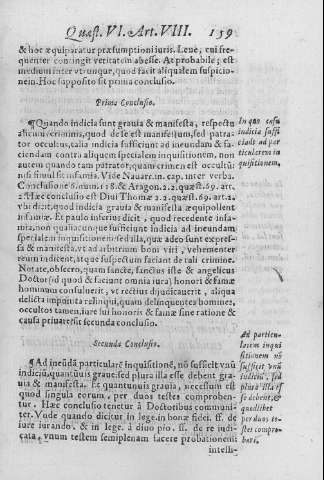 Quæst. VI. Art. VIII. 159
& hoc æquiparatur præsumptioni iuris. Leue, cui fre-
quenter contingit veritatem abesse. At probabile; est
medium inter vtrunque, quod facit aliqualem suspicio-
nem. Hoc supposito sit prima conclusio.
Prima Conclusio.
¶Quando indicia sunt grauia & manifesta, respectu
alicuius criminis, quod de se est manifestum, sed patra-
tor occultus, talia indicia sufficiunt ad ineundam & fa-
ciendam contra aliquem specialem inquisitionem, non
autem quando tam patrator, quam crimen est occultũ
nisi simul sit infamia. Vide Nauarr. in cap. inter verba.
Conclusione 6. num. 118. & Aragon. 2.2. quæst. 69. art.
2. Hæc conclusio est Diui Thomæ 2.2. quæst. 69. art. 2.
vbi dicit, quod indicia grauia & manifesta æquipollent
infamiæ. Et paulo inferius dicit, quod recedente infa-
mia, non qualiacunque sufficiant indicia ad ineundam
specialem inquisitionem sed talia, quæ adeo sunt expres-
sa & manifesta, vt ad arbitrium boni viri, vehementer
reum indicent, atque suspectum faciant de tali crimine.
Notate, obsecro, quam sancte, sanctus iste & angelicus
Doctor (id quod & faciunt omnia iura) honori & famæ
hominum consuluerit, vt rectius dijudicauerit, aliqua
delicta impunita relinqui, quam delinquentes homines,
occultos tamen, iure sui honoris & famæ sine ratione &
causa priuare sit secunda conclusio.
In quo casu
indicia suffi
ciant ad par
ticularem in
quisitionem.
Secunda Conclusio.
¶Ad ineũdã particularẽ inquisitionẽ, nõ sufficit vnũ
indiciũ, quantũuis graue, sed plura illa esse debent grauia
& manifesta. Et quantunuis grauia, necessum est
quod singula eorum, per duos testes comproben-
tur. Hæc conclusio tenetur à Doctoribus communi-
ter. Vude quando dicitur in lege. in honæ fidei. ff. de
iure iurando, & in lege. à diuo pio. ff. de re iudi-
cata, vnum testem semiplenam facere probationem:
intelli-
Ad particu-
larem inqui
sitionem nõ
sufficit vnũ
indiciũ, sed
plura illa es
se debent, &
quodlibet
per duos te-
stes compro-
bari.